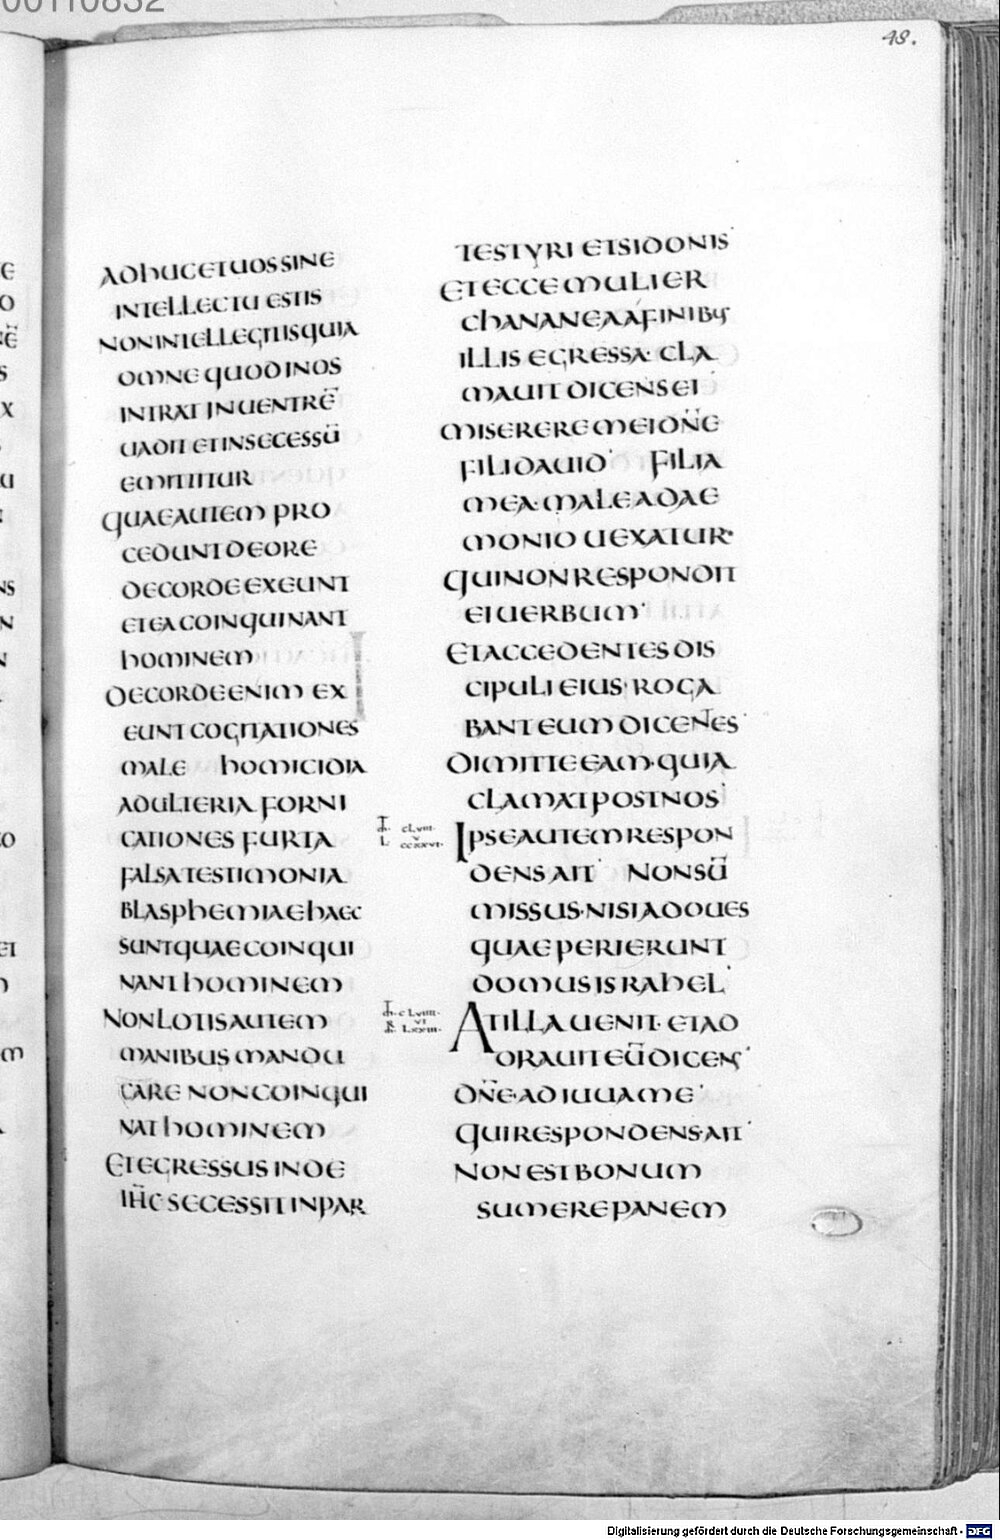 00110832
48.
ADHUCETUOSSINE
INTELLECTU ESTIS
NONINTELLEGITISQUIA
OMNEQUODINOS
INTRATINUENTRĒ
UADITETINSECESSŪ
EMITTITUR
QUAEAUTEM PRO
CEDUNTDEORE
DECORDEEXEUNT
ETEACOINQUINANT
HOMINEM
DECORDEENIM EX
EUNTCOGITATIONES
MALE HOMICIDIA
ADULTERIA FORNI
CATIONES FURTA
FALSATESTIMONIA
BLASPHEMIAEHAEC
SUNTQUAECOINQUI
NANTHOMINEM
NONLOTISAUTEM
MANIBUS MANDU
CARE NONCOINQUI
NATHOMINEM
ETEGRESSUSINDE
IHC̄ SECESSITINPAR
TESTYRI ETSIDONIS
ETECCEMULIER
CHANANEAAFINIBUS
ILLIS EGRESSA· CLA
MAUIT DICENSEI
MISEREREMEIDN̄E
FILIDAUID FILIA
MEA·MALEADAE
MONIO UEXATUR·
QUINONRESPONDIT
EIUERBUM·
ETACCEDENTESDIS
CIPULIEIUS·ROGA
BANTEUMDICENTES
DIMITTEEAM·QUIA
CLAMATPOSTNOS
IPSEAUTEMRESPON
DENSAIT NONSŪ
MISSUS·NISIADOUES
QUAEPERIERUNT
DOMUSISRAHEL
ATILLAUENIT·ETAD
ORAUITEŪDICENS
DN̄E·ADIUUAME·
QUIRESPONDENS·AIT
NONESTBONUM
SUMEREPANEM
Digitalisierung gefördert durch die Deutsche Forschungsgemeinschaft - DFG